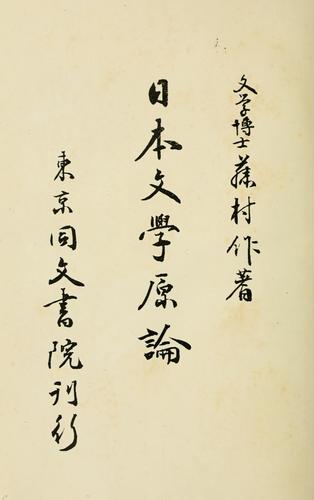 文学博士 藤村作著
日本文學原論
東京同文書院刊行